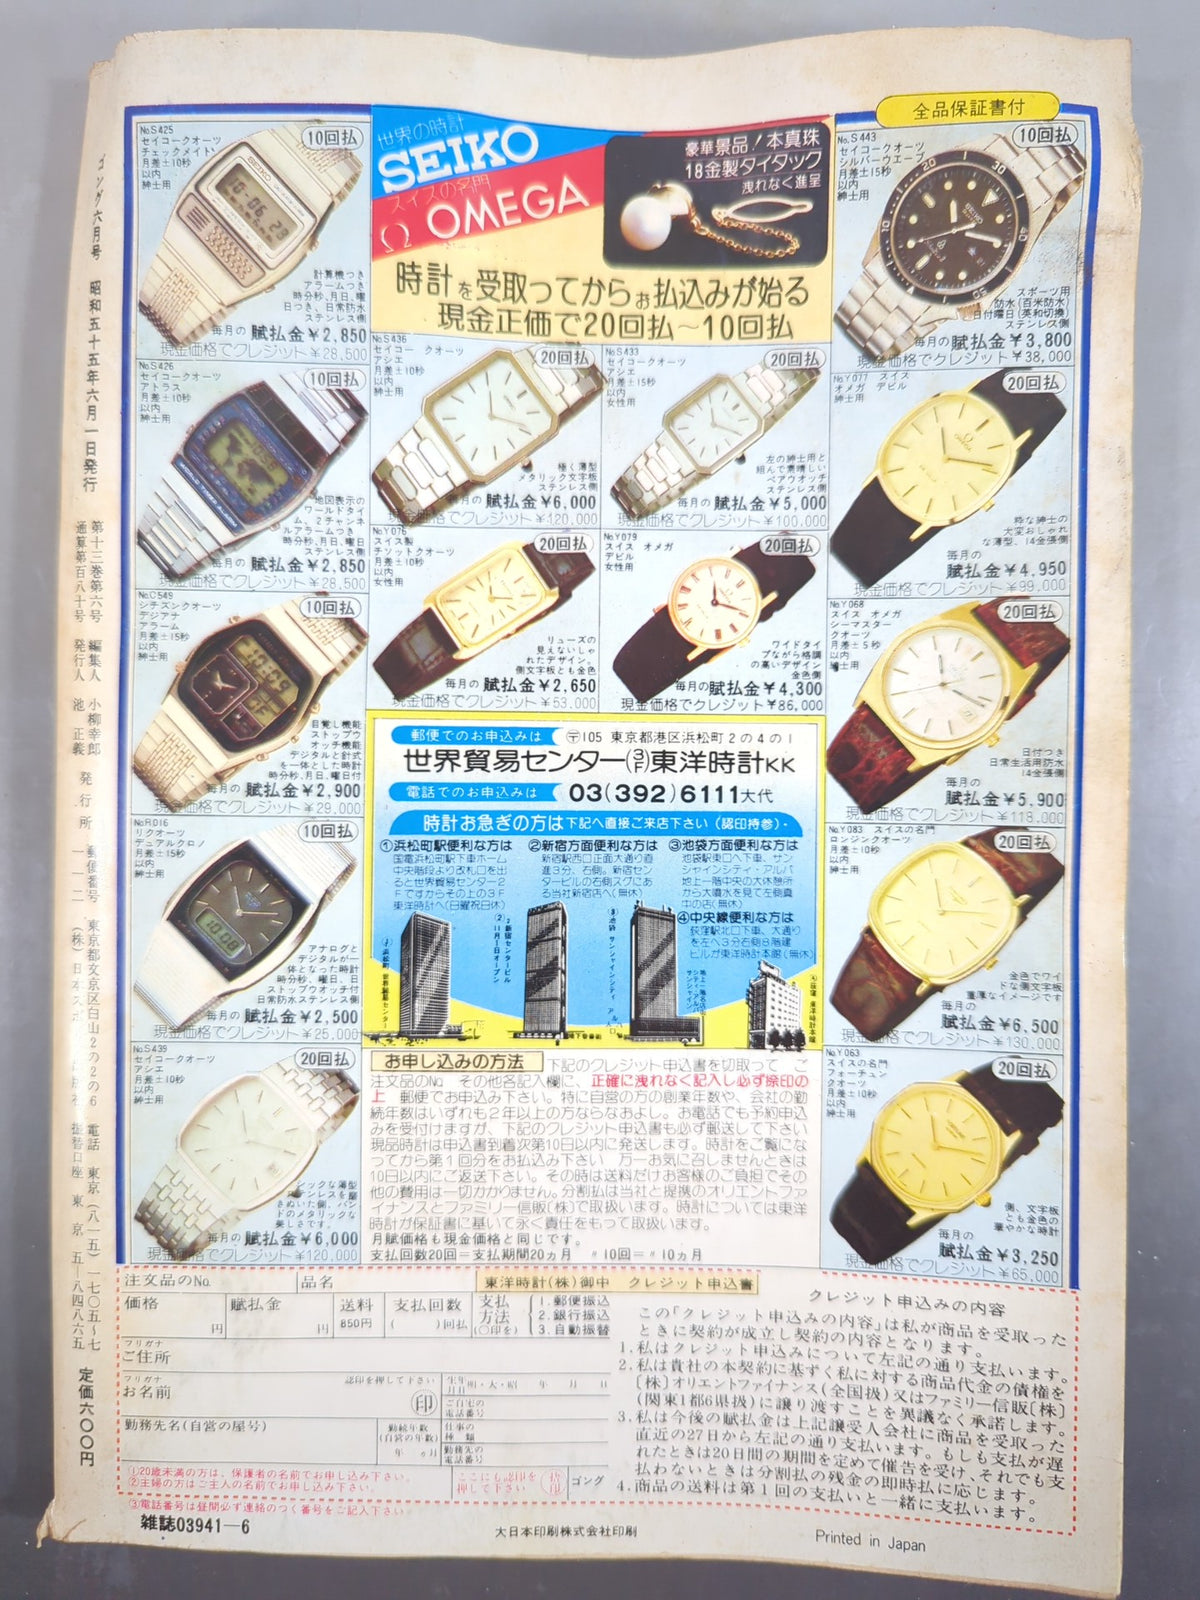 全品保証書付
No.S425
セイコークオーツ
チェックメイト
月差±10秒
以内
紳士用
10回払
計算機つき
アラームつき
時分秒、月日、曜
日つき、日常防水
ステンレス側
毎月の 賦払金￥2,850
現金価格でクレジット￥28,500
世界の時計
SEIKO
スイスの名門
Ω OMEGA
豪華景品！本真珠
18金製タイタック
洩れなく進呈
時計を受取ってからお払込みが始る
現金正価で20回払〜10回払
No.S443
セイコークオーツ
シルバーウエーブ
月差±15秒
以内
紳士用
10回払
スポーツ用
防水(百米防水)
日付曜日(英和切換)
ステンレス側
毎月の 賦払金￥3,800
現金価格でクレジット￥38,000
No.S426
セイコークオーツ
アトラス
月差±10秒
以内
紳士用
10回払
地図表示の
ワールドタイ
ム、2チャンネ
ルアラームつき
時分秒、月日、曜日
ステンレス側
毎月の 賦払金￥2,850
現金価格でクレジット￥28,500
No.S436
セイコー クオーツ
アシエ
月差±10秒
以内
紳士用
20回払
極く薄型
メタリック文字板
ステンレス側
毎月の 賦払金￥6,000
現金価格でクレジット￥120,000
No.S433
セイコークオーツ
アシエ
月差±15秒
以内
女性用
20回払
左の紳士用と
組んで素晴しい
ペアウオッチ
ステンレス側
毎月の 賦払金￥5,000
現金価格でクレジット￥100,000
No.Y077 スイス
オメガ デビル
紳士用
20回払
粋な紳士の
大変おしゃれ
な薄型、14金張側
毎月の
賦払金￥4,950
現金価格でクレジット￥99,000
No.C549
シチズンクオーツ
デジアナ
アラーム
月差±15秒
以内
紳士用
10回払
目覚し機能
ストップウ
オッチ機能
デジタルと針式
を一体とした時計
時分秒、月日、曜日付
毎月の 賦払金￥2,900
現金価格でクレジット￥29,000
No.Y076
スイス製
チソットクオーツ
月差±10秒
以内
女性用
20回払
リューズの
見えないしゃ
れたデザイン。
側文字板とも金色
毎月の 賦払金￥2,650
現金価格でクレジット￥53,000
No.Y079
スイス オメガ
デビル
女性用
20回払
ワイドタイ
プながら格調
の高いデザイン
金色側
毎月の賦払金￥4,300
現金価格でクレジット￥86,000
No.Y068
スイス オメガ
シーマスター
クオーツ
月差±5秒
以内
紳士用
20回払
日付つき
日常生活用防水
14金張側
毎月の
賦払金￥5,900
現金価格でクレジット￥118,000
郵便でのお申込みは 〒105 東京都港区浜松町2の4の1
世界貿易センター(3F)東洋時計KK
電話でのお申込みは 03(392)6111大代
時計お急ぎの方は下記へ直接ご来店下さい(認印持参)・
①浜松町駅便利な方は
国電浜松町駅下車ホーム
中央階段より改札口を出
ると世界貿易センター2
Fですからその上の3F
東洋時計へ(日曜祝日休)
②新宿方面便利な方は
新宿駅西口正面大通り直
進3分、右側。新宿セン
タービルの右側スグにあ
る当社新宿店へ(無休)
③池袋方面便利な方は
池袋駅東口へ下車、サン
シャインシティ・アルパ
地上一階中央の大休憩所
から大噴水を見て左側真
中の店(無休)
④中央線便利な方は
荻窪駅北口下車、大通り
を左へ3分右側8階建
ビルが東洋時計本館(無休)
①浜松町 世界貿易センター
②新宿センタービル
11月1日オープン
③池袋 サンシャインシティ アルパ
④荻窪 東洋時計本館
No.R016
リクオーツ
デュアルクロノ
月差±15秒
以内
紳士用
10回払
アナログと
デジタルが一
体となった時計
時分秒、曜日、日
ストップウオッチ付
日常防水ステンレス側
毎月の 賦払金￥2,500
現金価格でクレジット￥25,000
No.Y083 スイスの名門
ロンジンクオーツ
月差±10秒
以内
紳士用
20回払
金色でワイ
ドな側文字板
重厚なイメージです
毎月の
賦払金￥6,500
現金価格でクレジット￥130,000
No.S439
セイコークオーツ
アシエ
月差±10秒
以内
紳士用
20回払
シックな薄型
ステンレスを磨
きぬいた側、バン
ドのメタリックな
美しさです。
毎月の 賦払金￥6,000
現金価格でクレジット￥120,000
No.Y063
スイスの名門
フォーチュン
クオーツ
月差±10秒
以内
紳士用
20回払
側、文字板
とも金色の
華やかな時計
毎月の
賦払金￥3,250
現金価格でクレジット￥65,000
お申し込みの方法 下記のクレジット申込書を切取って ご
注文品のNo. その他各記入欄に、正確に洩れなく記入し必ず捺印の
上 郵便でお申込み下さい。特に自営の方の創業年数や、会社の勤
続年数はいずれも2年以上の方ならなおよし。お電話でも予約申込
みを受付けますが、下記のクレジット申込書も必ず郵送して下さい
現品時計は申込書到着次第10日以内に発送します。時計をご覧にな
ってから第1回分をお払込み下さい 万一お気に召しませんときは
10日以内にご返送下さい。その時は送料だけお客様のご負担でその
他の費用は一切かかりません。分割払は当社と提携のオリエントファ
イナンスとファミリー信販(株)で取扱います。時計については東洋
時計が保証書に基いて永く責任をもって取扱います。
月賦価格も現金価格と同じです。
支払回数20回＝支払期間20カ月 〃10回＝〃10カ月
東洋時計(株)御中 クレジット申込書
注文品のNo.
品名
価格 円
賦払金 円
送料 850円
支払回数 ( )回払
支払方法 (○印を)
1.郵便振込
2.銀行振込
3.自動振替
フリガナ
ご住所
フリガナ
お名前
認印を押して下さい
印
生年月日 明・大・昭 年 月 日
ご自宅の電話番号
勤務先名(自営の屋号)
勤続年数(自営の年数)
年 ヵ月
仕事の種類
勤務先の電話番号
①20歳未満の方は、保護者の名前でお申し込み下さい。
②主婦の方はご主人の名前でお申し込み下さい。
③電話番号は昼間必ず連絡のつく番号をご記入下さい
ここにも認印を押して下さい
捨印
ゴング
クレジット申込みの内容
この「クレジット申込みの内容」は私が商品を受取った
ときに契約が成立し契約の内容となります。
1.私はクレジット申込みについて左記の通り支払います。
2.私は貴社の本契約に基ずく私に対する商品代金の債権を
〔株〕オリエントファイナンス(全国扱)又はファミリー信販〔株〕
(関東1都6県扱)に譲り渡すことを異議なく承諾します。
3.私は今後の賦払金は上記譲受人会社に商品を受取った
直近の27日から左記の通り支払います。もしも支払が遅
れたときは20日間の期間を定めて催告を受け、それでも支
払わないときは分割払の残金の即時払に応じます。
4.商品の送料は第1回の支払いと一緒に支払います。
ゴング六月号 昭和五十五年六月一日発行
第十三巻第六号
通算第百八十号
編集人 小柳幸郎
発行人 池 正義
発行所
郵便番号一一二
東京都文京区白山2の2の6
電話 東京(八一五)一七〇五〜七
振替口座 東京 五―八四八六五
定価六〇〇円
雑誌03941―6
大日本印刷株式会社印刷
Printed in Japan